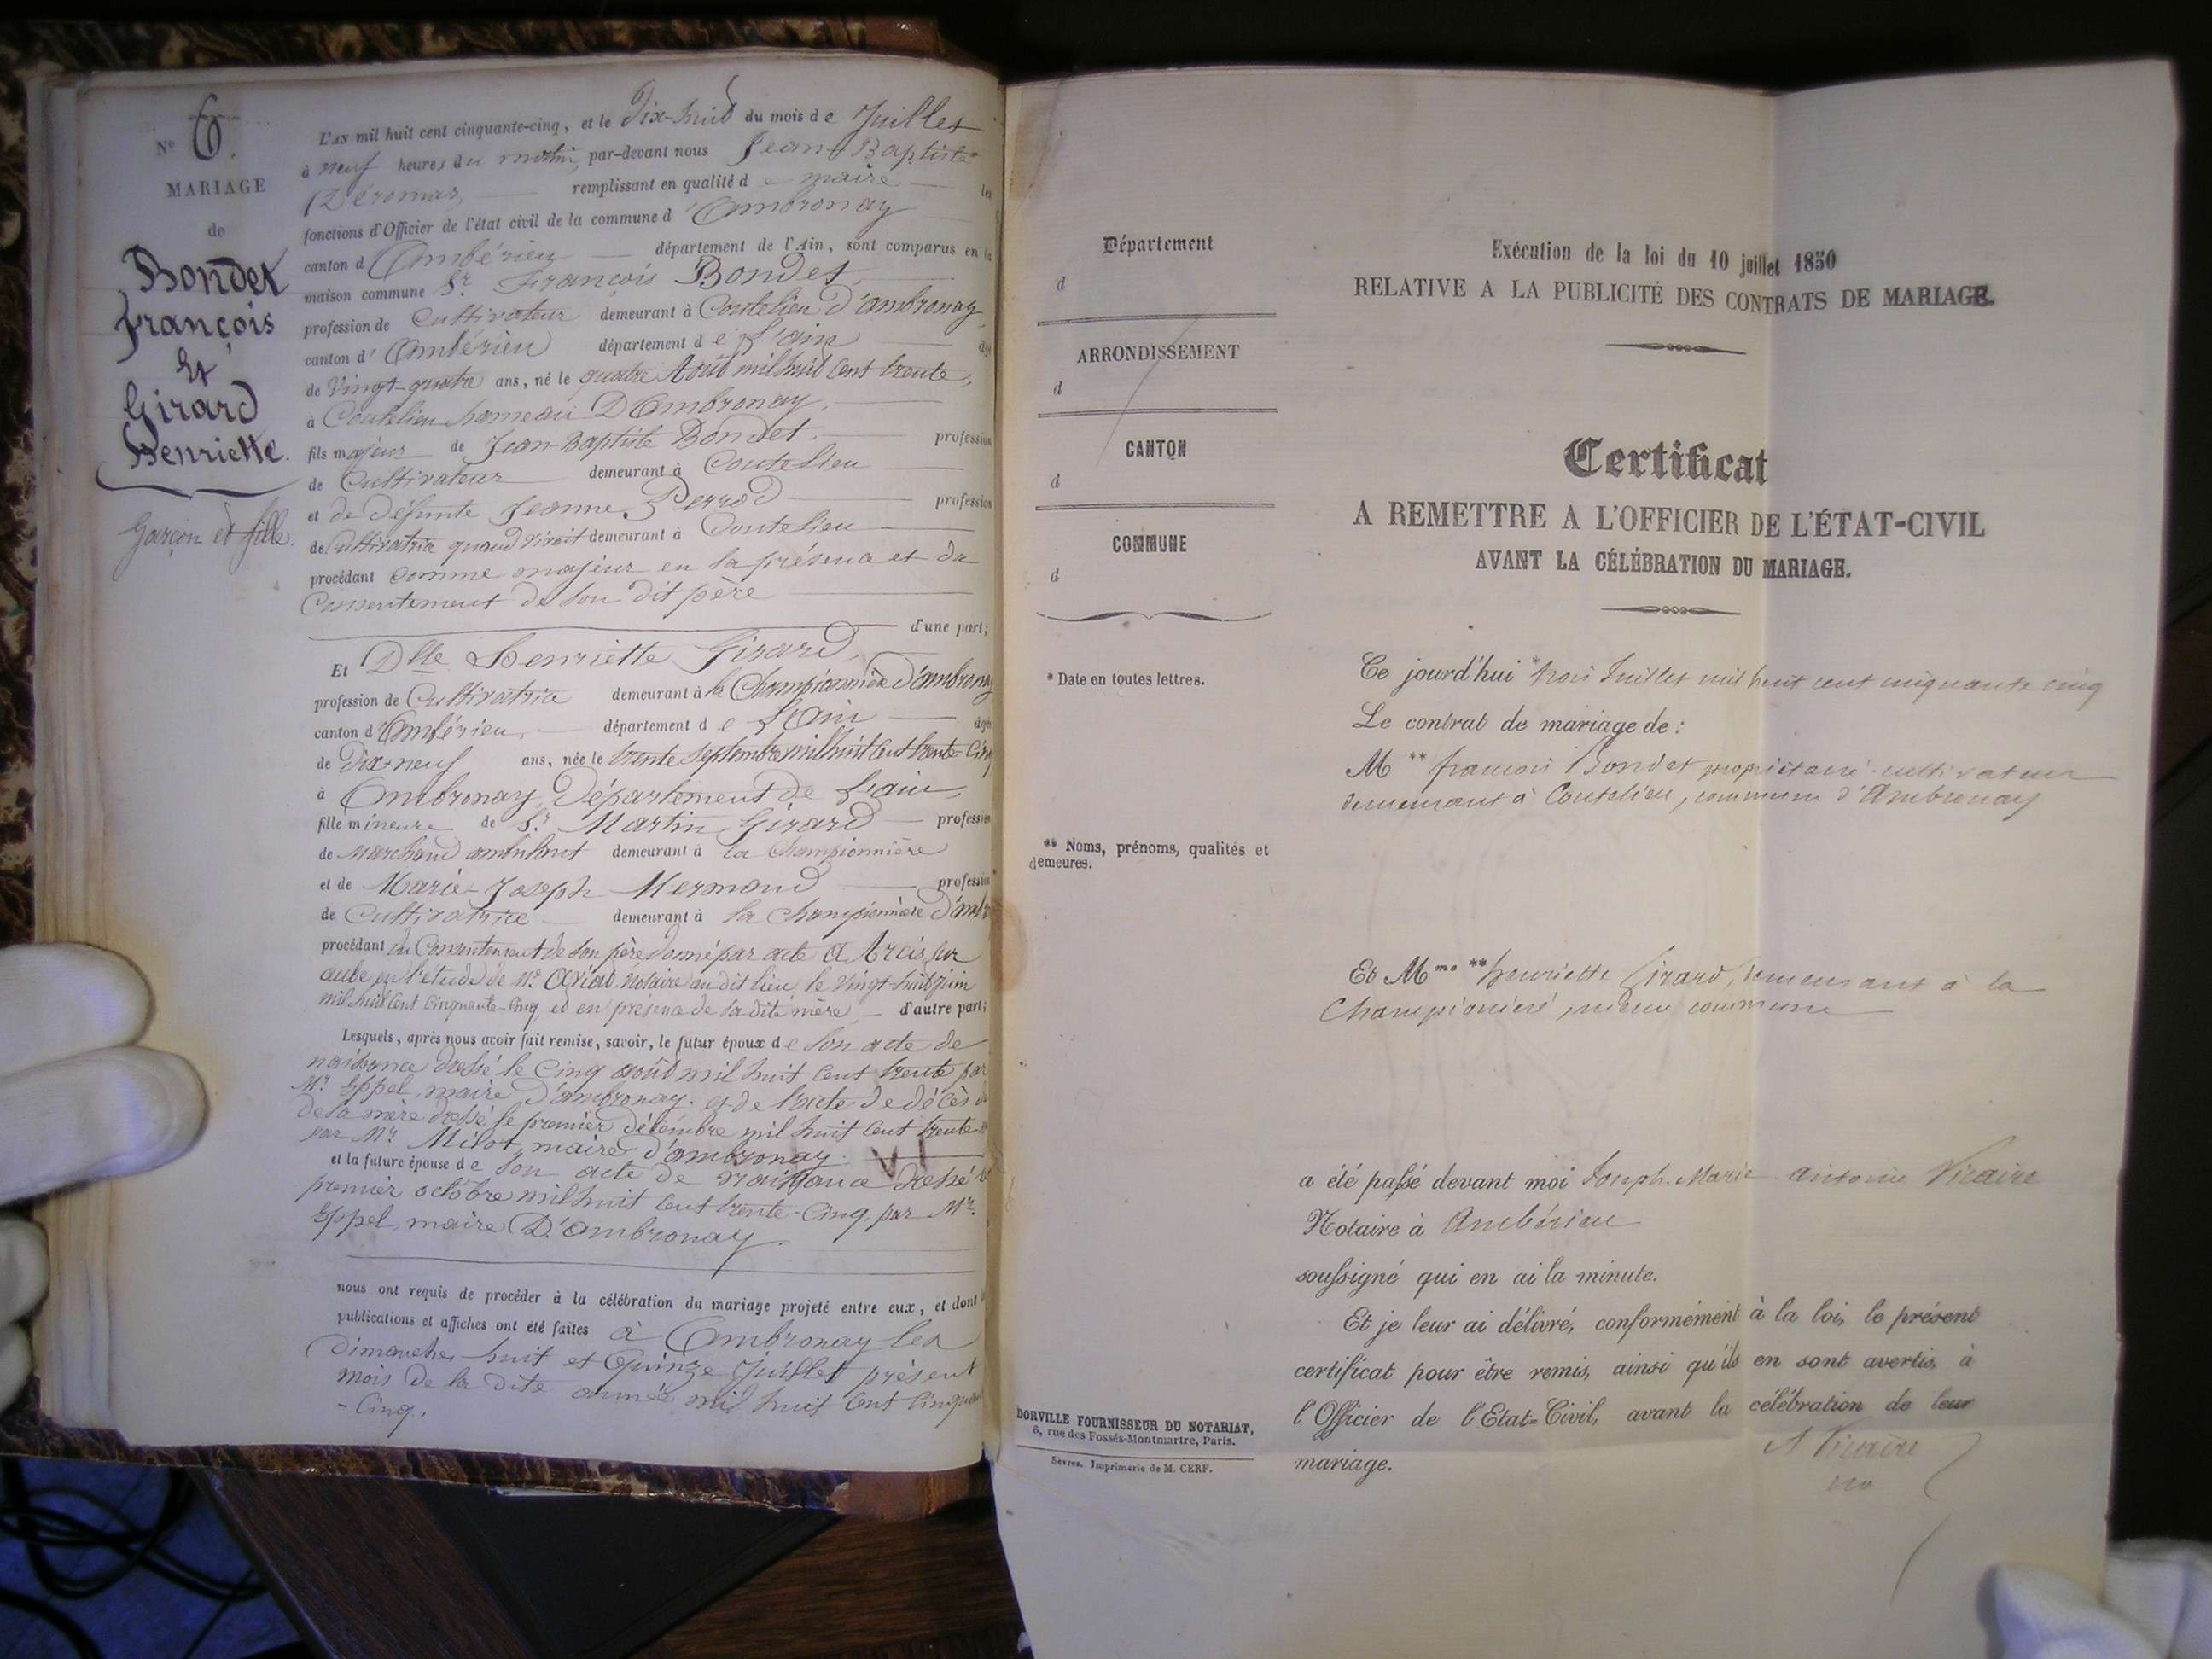 N° 6.
MARIAGE
de
Bondet
François
Et
Girard
Henriette.
Garçon et fille.
L'AN mil huit cent cinquante-cinq, et le Dix-huit du mois de Juillet
à neuf heures du matin, par-devant nous Jean-Baptiste
remplissant en qualité de maire les
fonctions d'Officier de l'état civil de la commune d'Ambronay
canton d'Ambérieu département de l'Ain, sont comparus en la
maison commune Sr François Bondet,
profession de Cultivateur demeurant à Coutelieu d'ambronay,
canton d'Ambérieu département de l'ain âgé
de Vingt-quatre ans, né le quatre Août mil huit cent trente,
à Coutelieu hameau D'Ambronay,
fils majeur de Jean-Baptiste Bondet. profession
de Cultivateur demeurant à Coutelieu
et de défunte Jeanne Perrod profession
de Cultivatrice quand vivait demeurant à Coutelieu
procédant comme majeur en la présence et du
Consentement de son dit père
d'une part;
Et Dlle Henriette Girard,
profession de Cultivatrice demeurant à la Championnière d'ambronay
canton d'Ambérieu, département de l'Ain âgée
de Dix-neuf ans, née le trente Septembre mil huit cent trente-cinq
à Ambronay, Département de l'ain,
fille mineure de Sr Martin Girard profession
de Marchand ambulant demeurant à la Championnière
et de Marie-Joseph Mermand profession
de Cultivatrice demeurant à la Championnière d'amb
procédant du Consentement de son père donné par acte à Arcis sur
aube en l'étude de Mr notaire au dit lieu, le vingt-huit juin
mil huit cent cinquante-cinq, et en présence de sa dite mère d'autre part;
Lesquels, après nous avoir fait remise, savoir, le futur époux de son acte de
naissance dressé le cinq août mil huit cent trente par
Mr Eppel, maire d'ambronay. et de l'acte de décès
de sa mère dressé le premier décembre mil huit cent trente
par Mr Milot, maire d'ambronay.
et la future épouse de son acte de naissance dressé le
premier octobre mil huit cent trente-cinq par Mr
Eppel, maire D'ambronay.
nous ont requis de procéder à la célébration du mariage projeté entre eux, et dont
publications et affiches ont été faites à Ambronay les
dimanches huit et Quinze Juillet présent
mois de la dite année mil huit cent cinquante
-cinq.
Département
d
ARRONDISSEMENT
d
CANTON
d
COMMUNE
d
* Date en toutes lettres.
** Noms, prénoms, qualités et
demeures.
DORVILLE FOURNISSEUR DU NOTARIAT,
6, rue des Fossés-Montmartre, Paris.
Sèvres. Imprimerie de M. CERF.
Exécution de la loi du 10 juillet 1850
RELATIVE A LA PUBLICITÉ DES CONTRATS DE MARIAGE.
Certificat
A REMETTRE A L'OFFICIER DE L'ÉTAT-CIVIL
AVANT LA CÉLÉBRATION DU MARIAGE.
Ce jourd'hui * trois Juillet mil huit cent cinquante cinq
Le contrat de mariage de :
M ** françois Bondet propriétaire-cultivateur
demeurant à Coutelieu, commune d'Ambronay
Et Mme ** henriette Girard, demeurant à la
Championière, même commune
a été passé devant moi Joseph-Marie antoine Vicaire
Notaire à Ambérieu
soussigné qui en ai la minute.
Et je leur ai délivré, conformément à la loi, le présent
certificat pour être remis, ainsi qu'ils en sont avertis, à
l'Officier de l'Etat-Civil, avant la célébration de leur
mariage.
A Vicaire